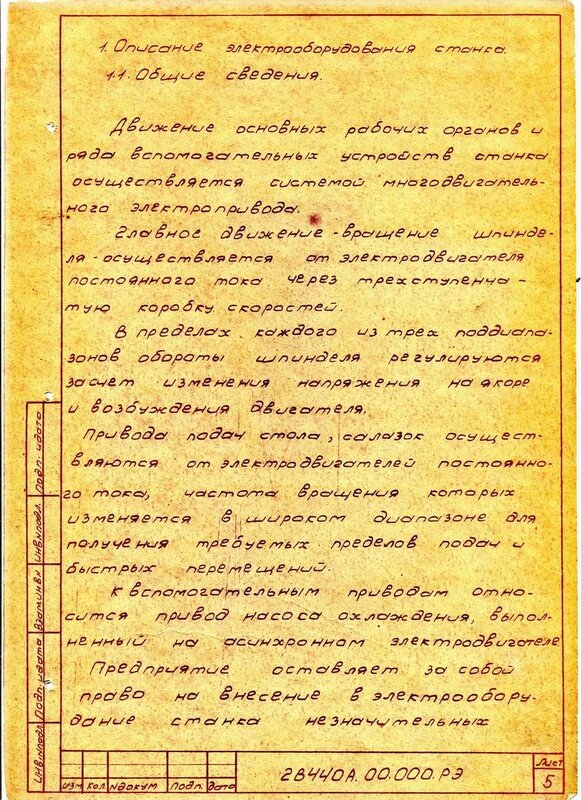 1. Описание электрооборудования станка.
1.1. Общие сведения.
Движение основных рабочих органов и
ряда вспомогательных устройств станка
осуществляется системой многодвигатель-
ного электропривода.
Главное движение - вращение шпинде-
ля - осуществляется от электродвигателя
постоянного тока через трехступенча-
тую коробку скоростей.
В пределах каждого из трех поддиапа-
зонов обороты шпинделя регулируются
засчет изменения напряжения на якоре
и возбуждения двигателя.
Привода подач стола, салазок осущест-
вляются от электродвигателей постоянно-
го тока, частота вращения которых
изменяется в широком диапазоне для
получения требуемых пределов подач и
быстрых перемещений.
К вспомогательным приводам отно-
сится привод насоса охлаждения, выпол-
ненный на асинхронном электродвигателе
Предприятие оставляет за собой
право на внесение в электрообору-
дание станка незначительных
Инв.№подл. Подп. и дата Взам.инв.№ Инв.№дубл. Подп. и дата
Изм Кол №докум Подп. Дата
2В440А.00.000.РЭ
Лист
5